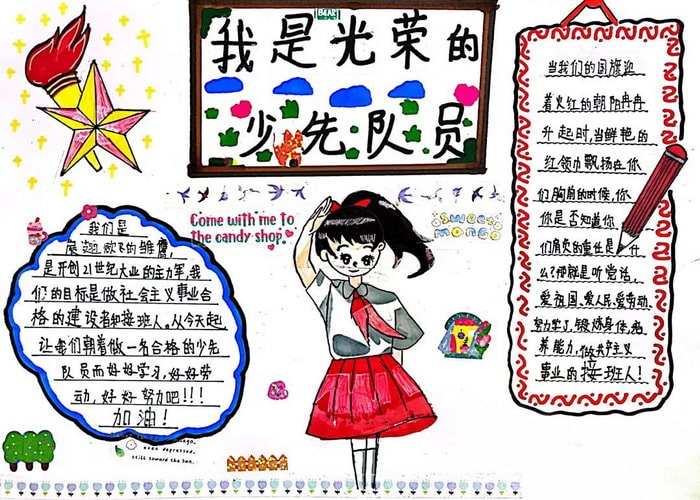 我是光荣的
少先队员
Come with me to
the candy shop.
sweet
mango
我们是
展翅欲飞的雏鹰,
是开创21世纪大业的主力军,我
们的目标是做社会主义事业合
格的建设者和接班人。从今天起
让我们朝着做一名合格的少先
队员而好好学习,好好劳
动,好好努力吧!!!
加油!
even depressed,
still toward the sun.
当我们的国旗迎
着火红的朝阳冉冉
升起时,当鲜艳的
红领巾飘扬在你
们胸肩的时候,你
你是否知道你
们肩负的重任是 什
么?那就是听党话
爱祖国、爱人民、爱劳动、
努力学习,锻炼身体,培
养能力,做共产主义
事业的接班人!